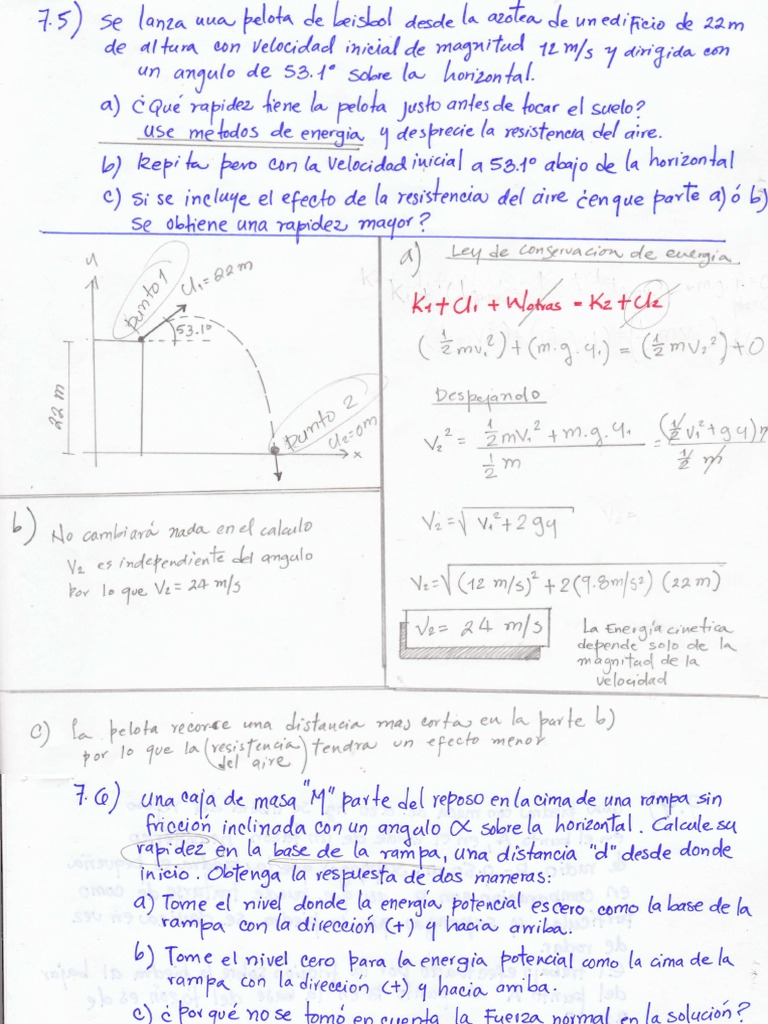 7.5) Se lanza una pelota de beisbol desde la azotea de un edificio de 22m
de altura con velocidad inicial de magnitud 12 m/s y dirigida con
un angulo de 53.1° sobre la horizontal.
a) ¿Qué rapidez tiene la pelota justo antes de tocar el suelo?
use metodos de energia y desprecie la resistencia del aire.
b) Repita pero con la velocidad inicial a 53.1° abajo de la horizontal
c) Si se incluye el efecto de la resistencia del aire ¿en que parte a) ó b)
se obtiene una rapidez mayor?
y
punto 1
y₁=22m
53.1°
22 m
punto 2
y₂=0m
x
a) Ley de conservacion de energia
K1 + U1 + Wotras = K2 + U2
(1/2 mv₁²) + (m.g.y₁) = (1/2 m v₂²) + 0
Despejando
V₂² = (1/2 mV₁² + m.g.y₁) / (1/2 m) = (1/2 v₁² + g y) m / (1/2 m)
V₂ = √(v₁² + 2gy)
V₂ = √((12 m/s)² + 2(9.8m/s²)(22m))
V₂ = 24 m/s
La Energía cinetica
depende solo de la
magnitud de la
velocidad
b) No cambiará nada en el calculo
V₂ es independiente del angulo
por lo que V₂ = 24 m/s
c) la pelota recorre una distancia mas corta en la parte b)
por lo que la (resistencia del aire) tendra un efecto menor
7.6) una caja de masa "M" parte del reposo en la cima de una rampa sin
fricción inclinada con un angulo α sobre la horizontal. Calcule su
rapidez en la base de la rampa, una distancia "d" desde donde
inicio. Obtenga la respuesta de dos maneras:
a) Tome el nivel donde la energía potencial es cero como la base de la
rampa con la dirección (+) y hacia arriba.
b) Tome el nivel cero para la energia potencial como la cima de la
rampa con la dirección (+) y hacia arriba.
c) ¿Por qué no se tomó en cuenta la Fuerza normal en la solución?